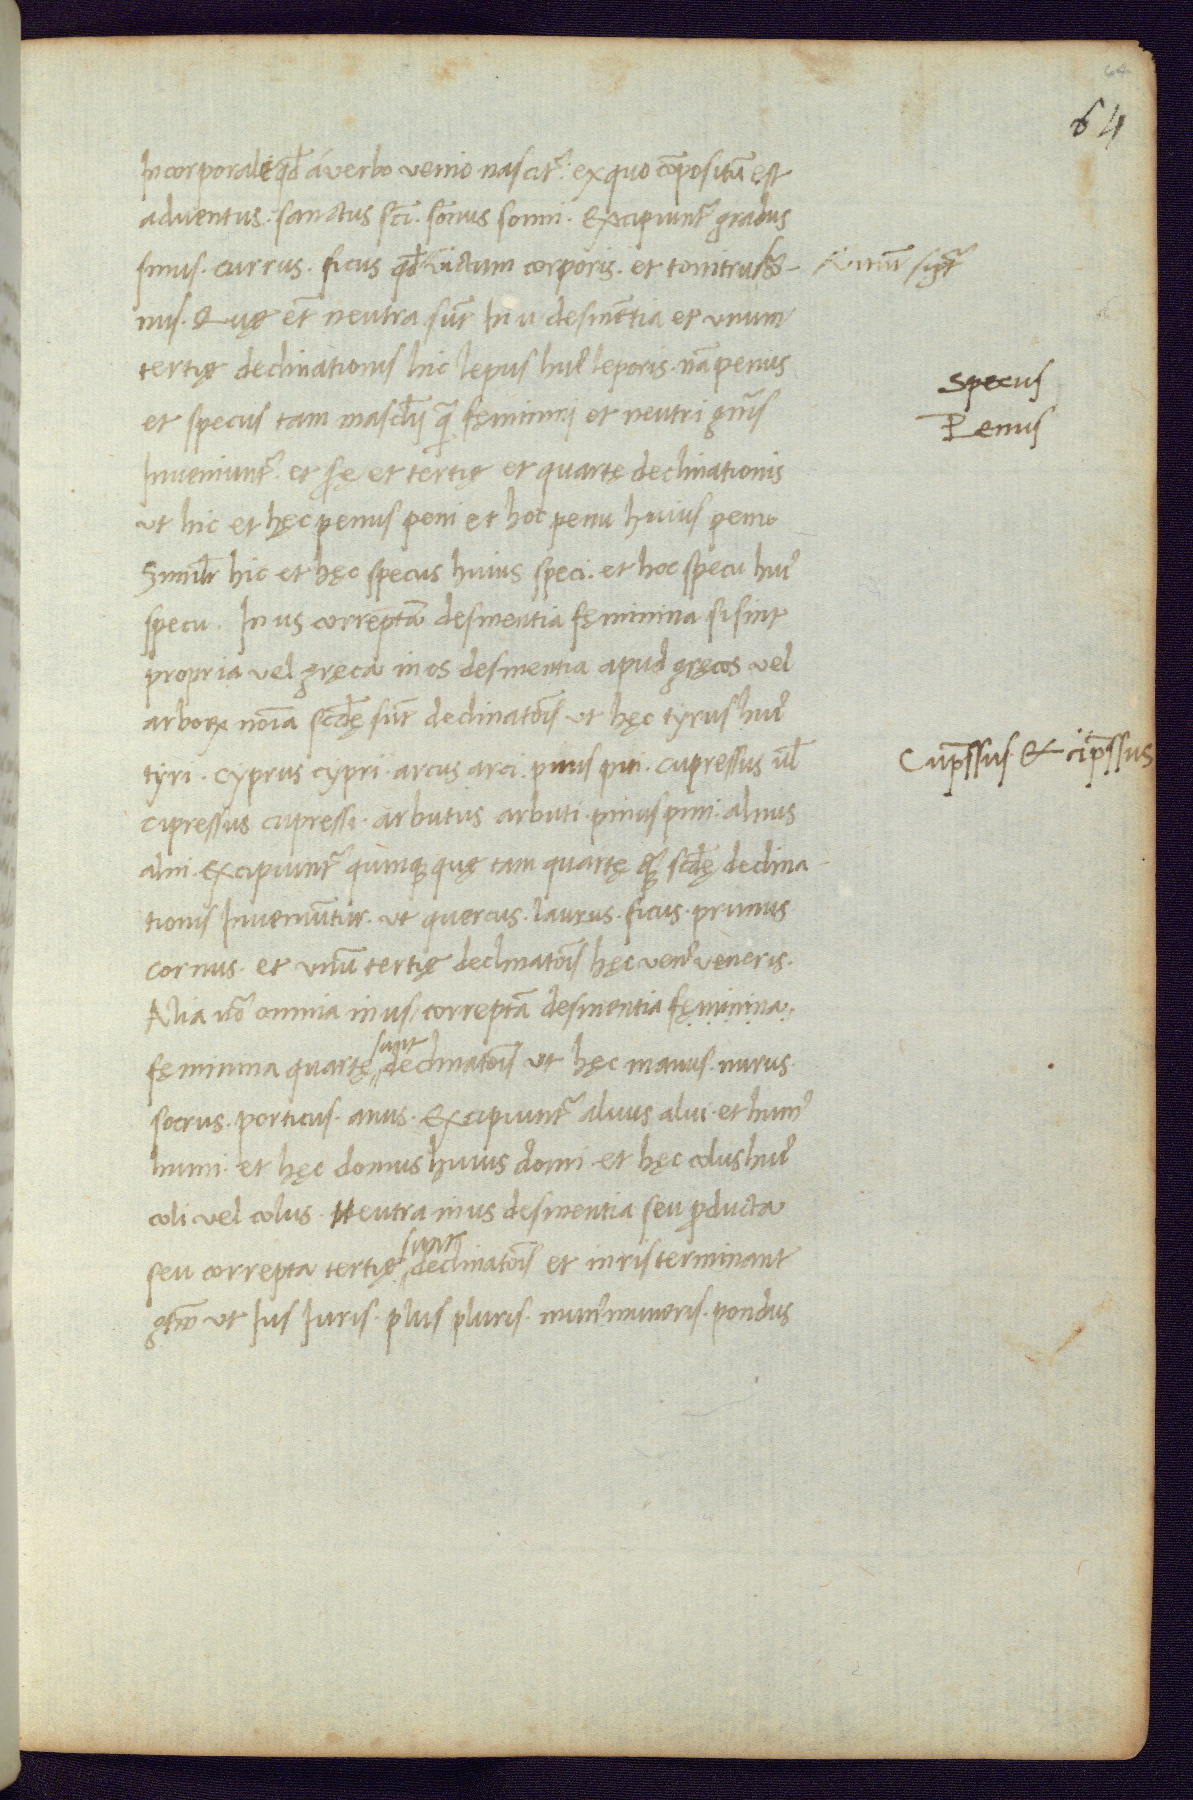 64
64
Incorporale qd̄ á verbo venio nascit᷑. ex quo cōpositū est
adventus. sanctus sc̄i. sōnus sonni. Excipiunt᷑ gradus
sinus. currus. ficus qd̄ corporis. et tonitrus
nus. Quę et̄ neutra sūt In u desinētia et unum
tertię declinationis hic lepus hui᷒ leporis. nā penus
et specus tam mascl̄i q̄ fęminini et neutri gn̄is
Inveniunt᷑. et sc̄dę et tertię et quartę declinationis
ut hic et hęc penus peni et hoc penu huius penu
Similr̄ hic et hęc specus huius speci. et hoc specu hui᷒
specu. In us correptā desinentia fęminina si sint
propria vel gręca in os desinentia apud gręcos vel
arboꝝ noīa sc̄dę sūt declinatōis ut hęc tyrus hui᷒
tyri. cyprus cypri. arcus arci. pinus pini. cupressus ul̄
cipressus cupressi. arbutus arbuti. pinus pini. alnus
alni. Excipiunt᷑ quinqꝫ quę tam quartę qꝫ sc̄dę declina
tionis Inveniūtur. ut quercus. laurus. ficus. prinus
cornus. et unū tertię declinatōis hęc ven᷒ veneris.
Alia ũo omnia in us correptā desinentia fęminina.
fęminina quartę sunt declinatōis ut hęc manus. nurus.
socrus. porticus. anus. Excipiunt᷑ aluus alui. et hum᷒
humi. et hęc domus huius domi et hęc colus hui᷒
coli vel colus. Neutra in us desinentia seu ꝓducta
seu correpta tertię sunt declinatōis et in ris terminant
gtm̄ ut Ius Iuris. plus pluris. mun᷒ muneris. pondus
specus
Penus
Cup̄ssus & cip̄ssus